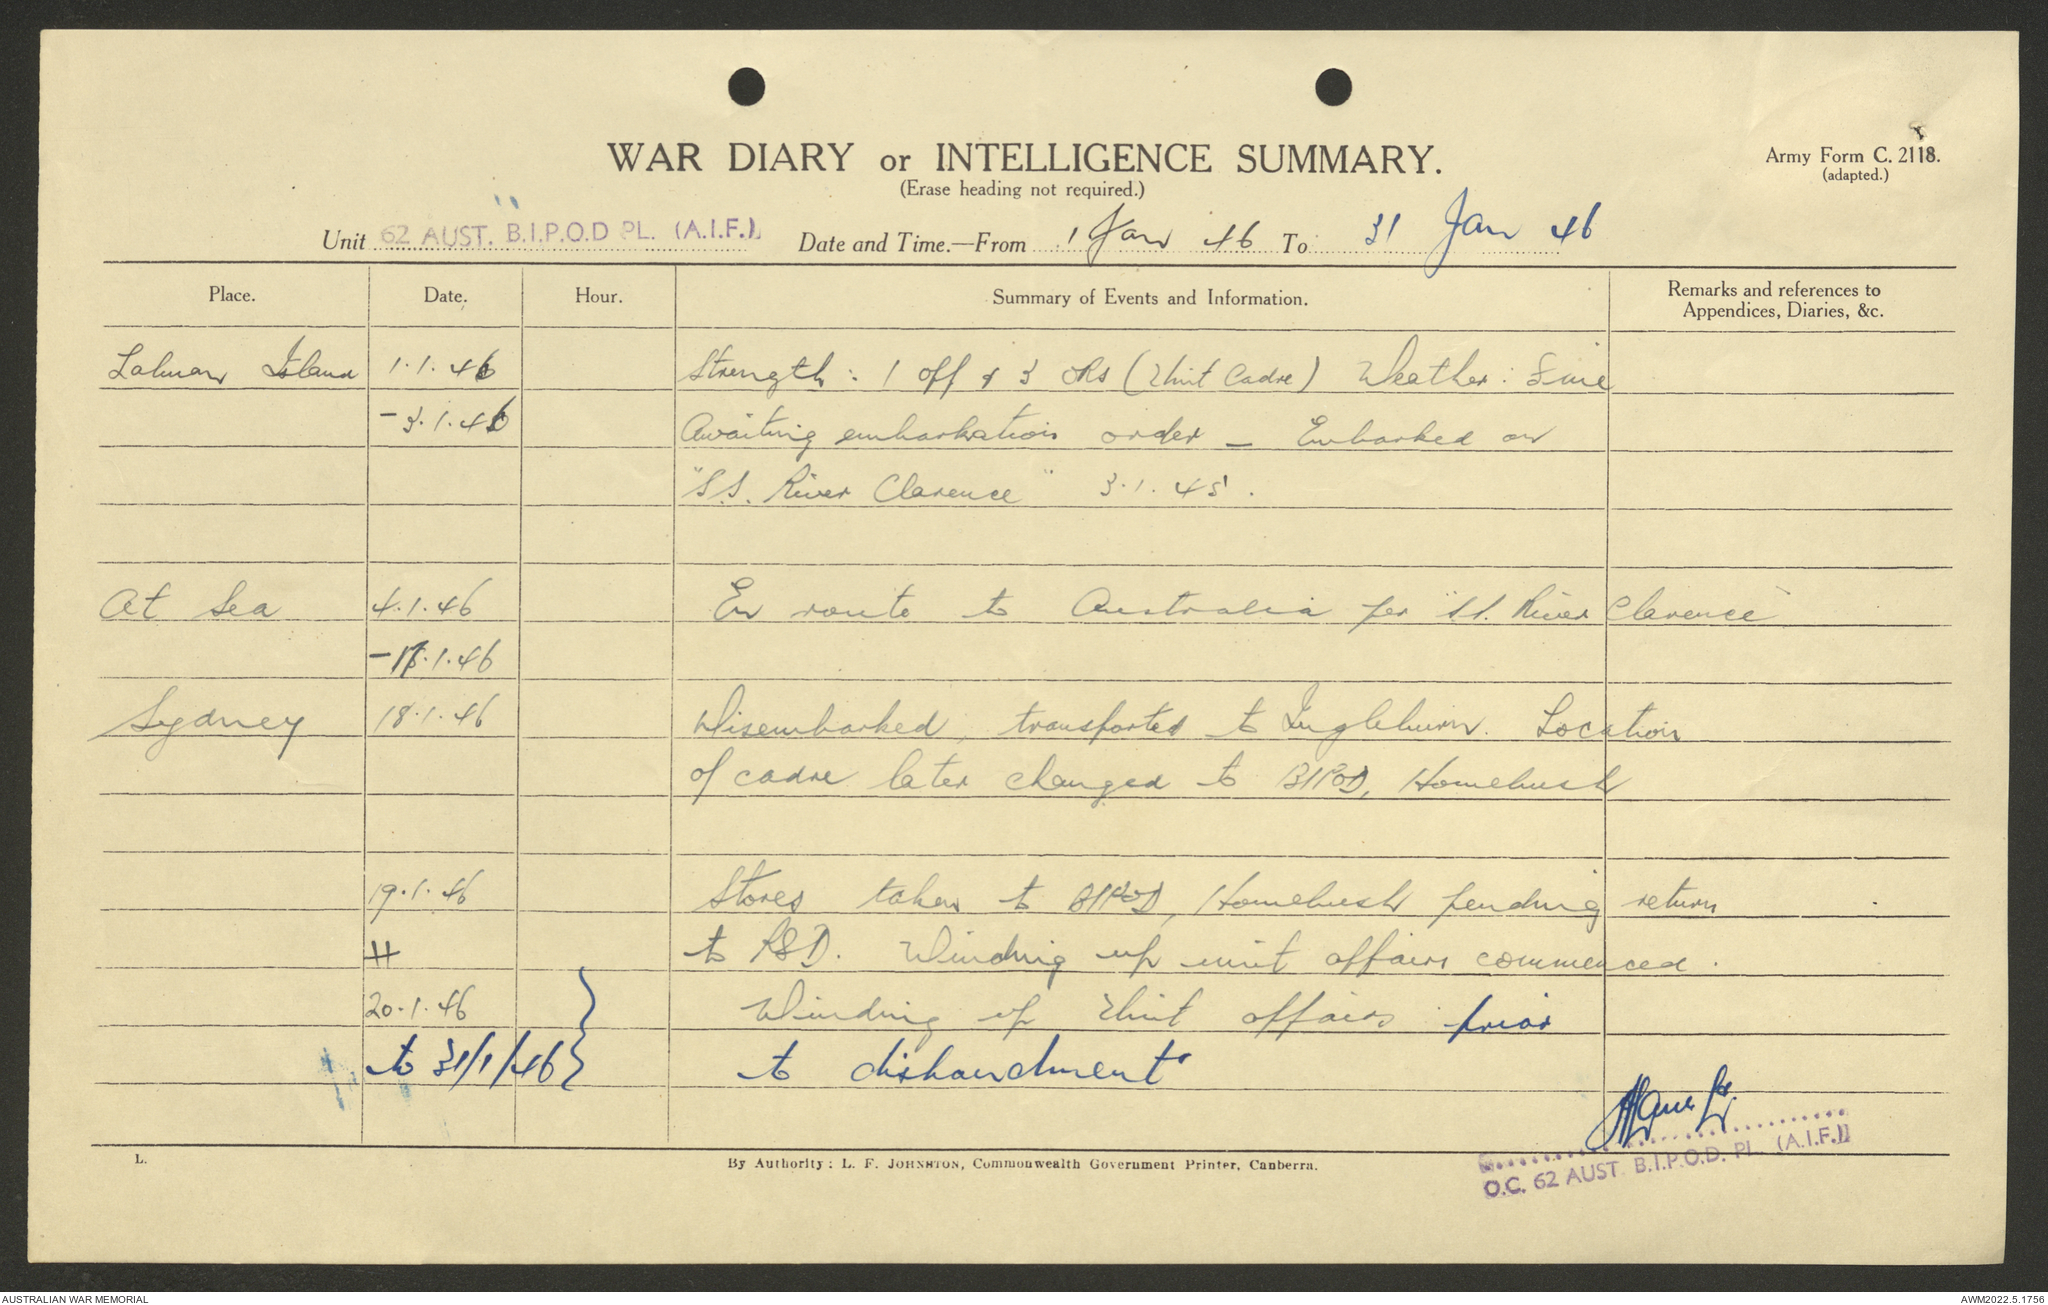 WAR DIARY or INTELLIGENCE SUMMARY.
(Erase heading not required.)
Army Form C. 2118.
(adapted.)
Unit 62 AUST. B.I.P.O.D PL. (A.I.F.) Date and Time.—From 1 Jan 46 To 31 Jan 46
Place. Date. Hour. Summary of Events and Information. Remarks and references to
Appendices, Diaries, &c.
Labuan Island 1.1.46 Strength: 1 off & 3 ORs (Unit Cadre) Weather: Fine
-3.1.46 Awaiting embarkation order - Embarked on
"S.S. River Clarence" 3.1.45.
At Sea 4.1.46 En route to Australia per "SS. River Clarence"
-17.1.46
Sydney 18.1.46 Disembarked, transported to Ingleburn. Location
of cadre later changed to BIPOD, Homebush
19.1.46 Stores taken to BIPOD, Homebush pending return
to RSD. Winding up unit affairs commenced.
20.1.46 Winding up Unit affairs prior
to 31/1/46 to disbandment
O.C. 62 AUST. B.I.P.O.D. PL. (A.I.F.)
L. By Authority: L. F. JOHNSTON, Commonwealth Government Printer, Canberra.
AUSTRALIAN WAR MEMORIAL AWM2022.5.1756